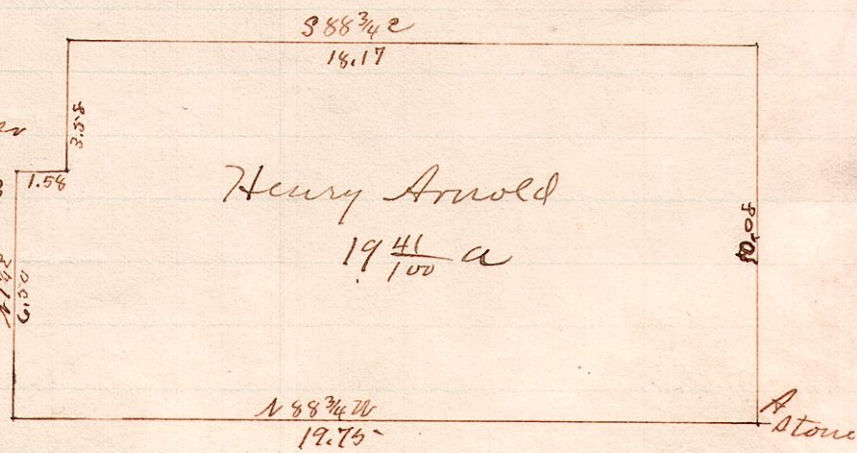 S 88 3/4 E
18.17
3.58
1.58
Henry Arnold
19 41/100 a
6.50
N 88 3/4 W
19.75
A
Stone